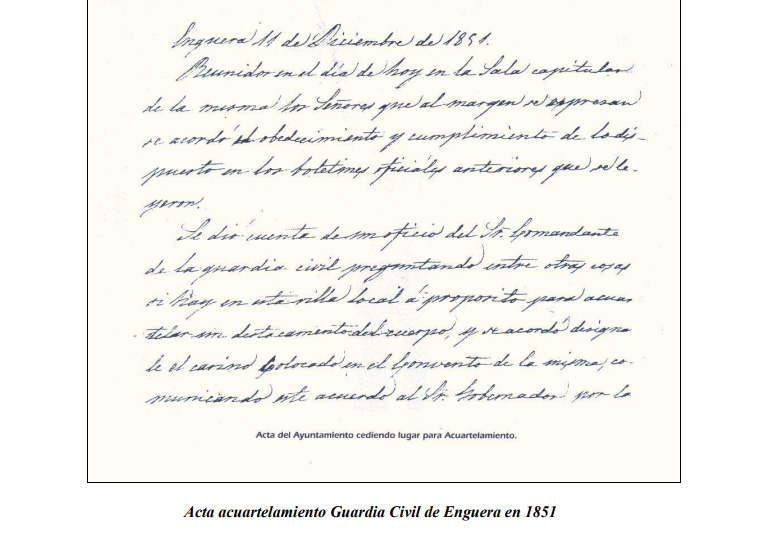 Enguera 11 de Diciembre de 1851.
Reunidos en el día de hoy en la Sala capitular
de la misma los Señores que al margen se espresan
se acordó el obedecimiento y cumplimiento de lo dis-
puesto en los boletines oficiales anteriores que se le-
yeron.
Se dió cuenta de un oficio del Sr. Comandante
de la guardia civil preguntando entre otras cosas
si hay en esta villa local á proposito para acuar
telar un destacamento del cuerpo, y se acordó designa
le el casino colocado en el Convento de la misma, co-
municando este acuerdo al Sr. Gobernador por la
Acta del Ayuntamiento cediendo lugar para Acuartelamiento.
Acta acuartelamiento Guardia Civil de Enguera en 1851